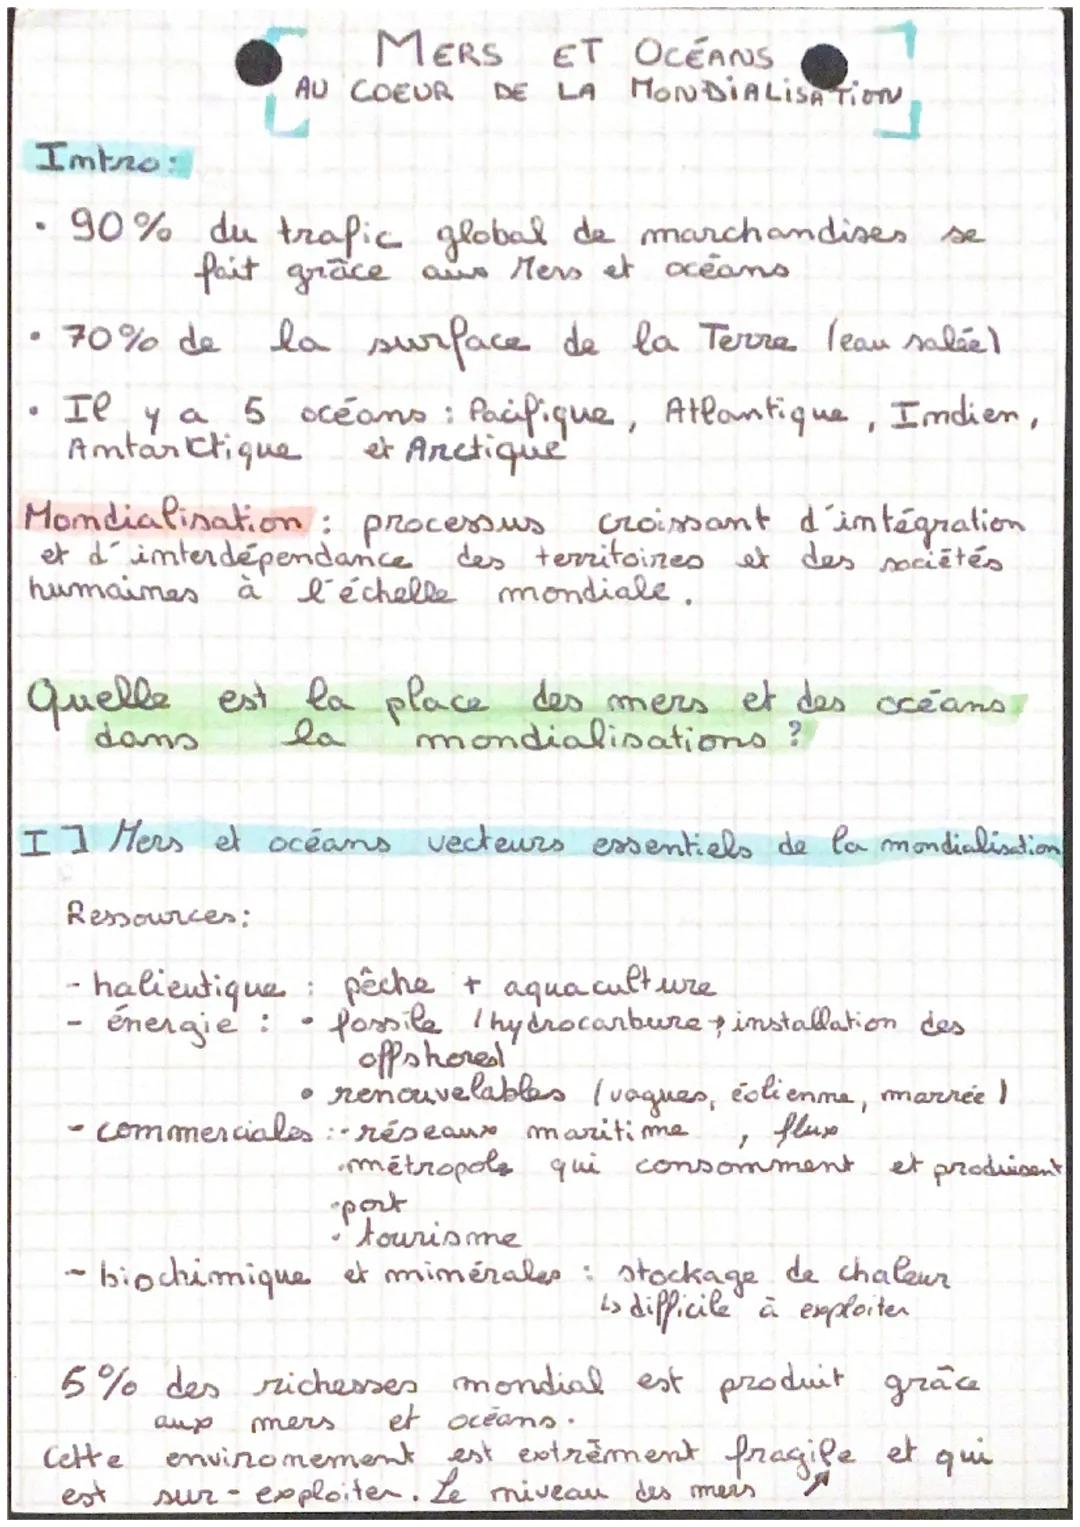 MERS ET OCÉANS
AU COEUR DE LA MONDIALISATION
Intro:
• 90% du trafic global de marchandises se
fait grâce aux Mers et océans
• 70% de la surface de la Terre (eau salée)
• Il y a 5 océans : Pacifique, Atlantique, Indien,
Antarctique et Arctique
Mondialisation : processus croissant d'intégration
et d'interdépendance des territoires et des sociétés
humaines à l'échelle mondiale.
Quelle est la place des mers et des océans
dans la mondialisations ?
I] Mers et océans vecteurs essentiels de la mondialisation
Ressources:
- halieutique : pêche + aquaculture
- énergie : • fossile (hydrocarbure → installation des
offshores)
• renouvelables (vagues, éolienne, marrée)
- commerciales : - réseaux maritime, flux
• métropole qui consomment et produisent
• port
• tourisme
- biochimique et minérales : stockage de chaleur
↳ difficile à exploiter
5% des richesses mondial est produit grâce
aux mers et océans.
Cette environement est extrêment fragile et qui
est sur-exploiter. Le niveau des mers ↗